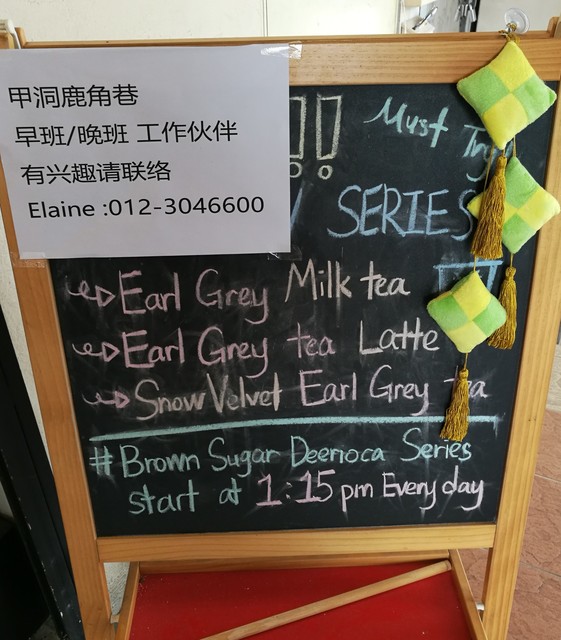 甲洞鹿角巷
早班/晚班 工作伙伴
有兴趣请联络
Elaine :012-3046600
!!
Must Try
SERIES
Earl Grey Milk tea
Earl Grey tea Latte
Snow Velvet Earl Grey tea
# Brown Sugar Deerioca Series
start at 1:15 pm Everyday